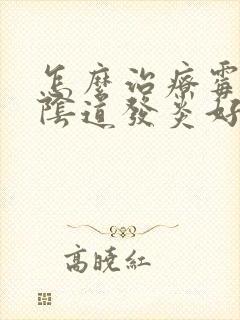 怎麼治療霉
陰道發炎好
高曉紅